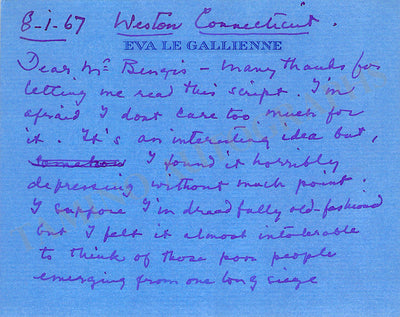 8-1-67 Weston Connecticut.
EVA LE GALLIENNE
Dear Mr Bengis – Many thanks for
letting me read this script. I'm
afraid I dont care too much for
it. It's an interesting idea but,
somehow I found it horribly
depressing without much point.
I suppose I'm dreadfully old-fashioned
but I felt it almost intolerable
to think of those poor people
emerging from one long siege